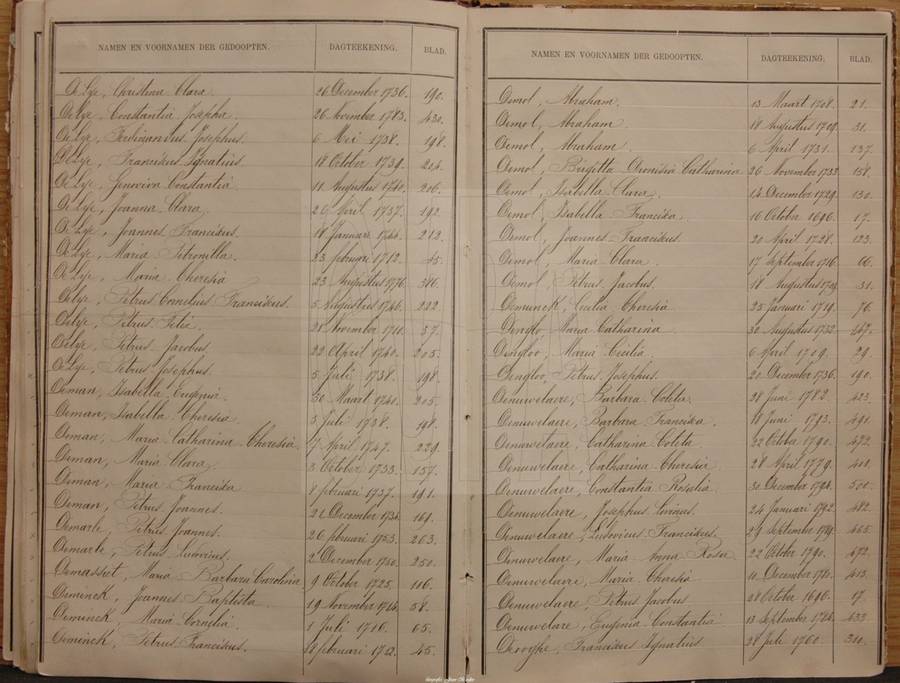 NAMEN EN VOORNAMEN DER GEDOOPTEN. DAGTEEKENING. BLAD.
De Lye, Christina Clara 26 December 1736. 190.
De Lye, Constantia Josepha 26 November 1783. 430.
De Lye, Ferdinandus Josephus 6 Mei 1738. 198.
De Lye, Franciskus Ignatius 18 October 1739. 204.
De Lye, Genovira Constantia 11 Augustus 1740. 206.
De Lye, Joanna Clara 26 April 1737. 192.
De Lye, Joannes Franciscus 18 Januari 1744. 212.
De Lye, Maria Petronilla 23 februari 1712. 45.
De Lye, Maria Theresia 23 Augustus 1776. 386.
De Lye, Petrus Cornelius Franciskus. 5 Augustus 1746. 222
De Lye, Petrus 25 November 1710. 57.
De Lye, Petrus Jacobus 22 April 1740. 205.
De Lye, Petrus Josephus. 5 Juli 1738. 198.
Deman, Isabella Eugenia 30 Maart 1740. 205.
Deman, Isabella Theresia 5 Juli 1738. 198.
Deman, Maria Catharina Theresia 7 April 1747. 229.
Deman, Maria Clara 3 October 1733. 157.
Deman, Maria Francisca 8 februari 1737. 191.
Deman, Petrus Joannes. 21 December 1734. 164.
Demarle, Petrus Joannes 26 februari 1753. 263.
Demarle, Petrus Ludovicus. 2 December 1750. 250.
Demasset, Maria Barbara Carolina 9 October 1725. 116.
Deminck, Joannes Baptista 19 November 1714. 58.
Deminck, Maria Cornelia 1 Juli 1716. 65.
Deminck, Petrus Franciscus. 8 februari 1712. 45.
NAMEN EN VOORNAMEN DER GEDOOPTEN. DAGTEEKENING. BLAD.
Demol, Abraham. 13 Maart 1708. 21.
Demol, Abraham 18 Augustus 1709. 31.
Demol, Abraham 6 April 1731. 137.
Demol, Brigitta Dionisia Catharina 26 November 1733 158.
Demol, Isabella Clara 14 December 1729. 130.
Demol, Isabella Franciska 16 October 1696. 17.
Demol, Joannes Franciskus. 20 April 1728. 123.
Demol, Maria Clara 17 September 1716. 66.
Demol, Petrus Jacobus. 18 Augustus 1709. 31.
Demuinck, Cecilia Theresia 25 Januari 1719. 76.
Denglo, Maria Catharina 30 Augustus 1732 267.
Dengloo, Maria Cicilia 6 April 1709. 29.
Dengloo, Petrus Josephus. 20 December 1736. 190.
Denuwelaere, Barbara Coleta 28 Juni 1782. 423.
Denuwelaere, Barbara Franciska 18 Juni 1793. 491.
Denuwelaere, Catharina Coleta 22 October 1790. 472.
Denuwelaere, Catharina Theresia 28 April 1779. 404.
Denuwelaere, Constantia Rosalia 30 December 1794. 500.
Denuwelaere, Josephus Livinus 24 Januari 1792 482.
Denuwelaere, Ludovicus Franciskus. 27 September 1789. 465.
Denuwelaere, Maria Anna Rosa 22 October 1790. 472.
Denuwelaere, Maria Theresia 11 December 1780. 413.
Denuwelaere, Petrus Jacobus 28 October 1696. 17.
Denuwelare, Eugenia Constantia 13 September 1786.
Deooghe, Franciskus Ignatius 28 Juli 1760. 310.